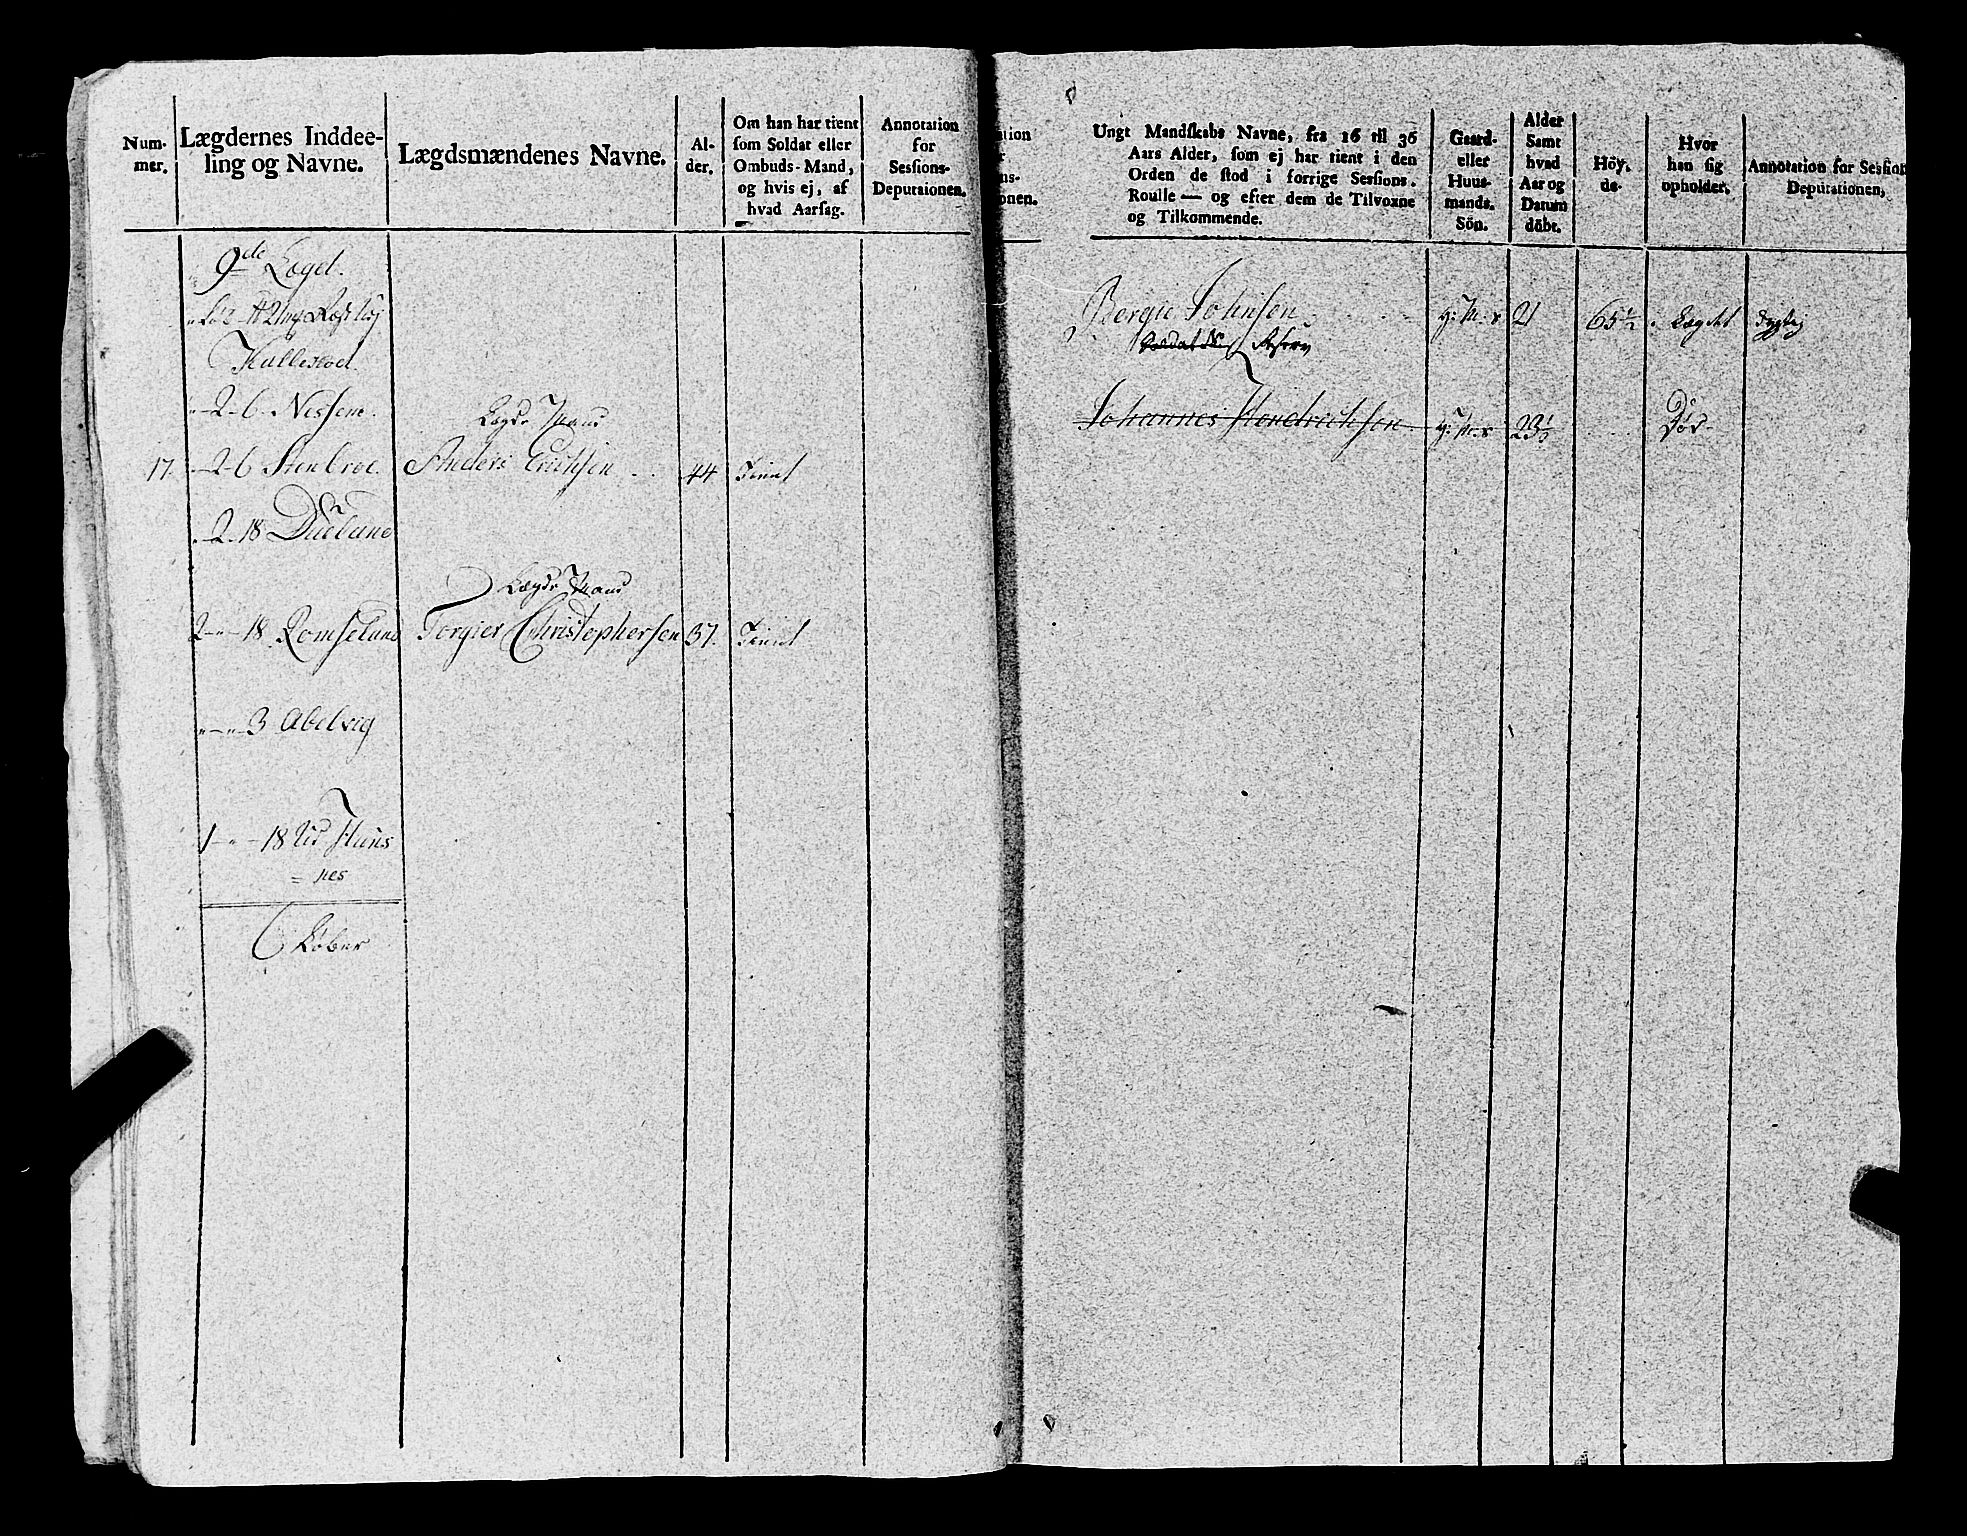 Num-
mer.
Lægdernes Inddee-
ling og Navne.
Lægdsmændenes Navne.
Al-
der.
Om han har tient
som Soldat eller
Ombuds-Mand,
og hvis ej, af
hvad Aarsag.
Annotation
for
Sessions-
Deputationen.
9de Læget.
Kallerod
2-6 Nessem.
Lægds Mand
17. 2-6 Stenbroe Anders Erichsen 44 Tient
2-18 Dueland
Lægds Mand
2-"-18 Romseland Torgier Christophersen 37. Tient
"-"-3 Abelvig
1-"-18 Huns
= nes
6
Ungt Mandskabs Navne, fra 16 til 36
Aars Alder, som ej har tient i den
Orden de stod i forrige Sessions-
Roulle — og efter dem de Tilvoxne
og Tilkommende.
Gaard-
eller
Huus-
mands-
Sön.
Alder
Samt
hvad
Aar og
Datum
döbt.
Höy-
de-
Hvor
han sig
opholder.
Annotation for Session
Deputationen,
Bergie Johnsen 21 65½ Læget Dygtig
Reserv
Johannes Hendrichsen 23½ Död